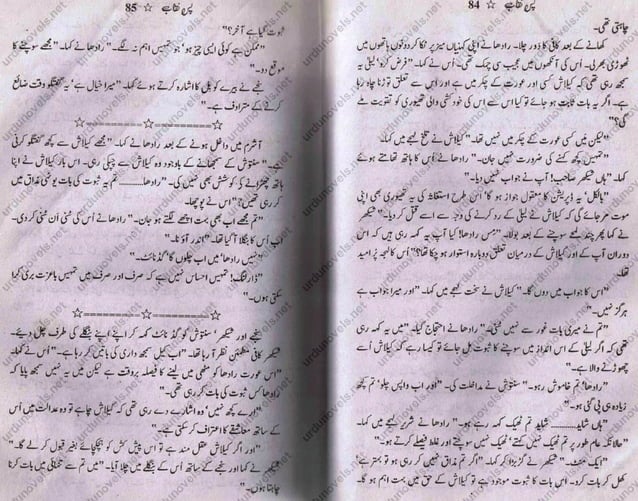 پس نقاب ☆ 84
چاہتی تھی۔
کھانے کے بعد کافی کا دور چلا۔ رادھا نے اپنی کہنیاں میز پر ٹکا کر دونوں ہاتھوں میں
ٹھوڑی بھر لی۔ اس کی آنکھوں میں عجیب سی چمک تھی۔ اس نے کہا۔ "فرض کرو' لیلی یہ
سمجھ رہی تھی کہ کیلاش کسی اور عورت کے چکر میں ہے اور اس سے تعلق توڑنا چاہ رہا
ہے۔ اگر یہ بات ثابت ہو جائے تو کیا اس سے اس کی خودکشی والی تھیوری کو تقویت ملے
گی؟"
"لیکن میں کسی عورت کے چکر میں نہیں تھا۔" کیلاش نے تلخ لہجے میں کہا۔
"تمہیں کچھ کہنے کی ضرورت نہیں جان۔" رادھا نے اس کا ہاتھ تھامتے ہوئے
کہا۔ "ہاں شیکھر صاحب! آپ نے جواب نہیں دیا۔"
"بالکل' یہ ڈپریشن کا معقول جواز ہو گا' اس طرح استغاثہ کی یہ تھیوری بھی اپنی
موت مر جائے گی کہ کیلاش نے لیلی کے رد کرنے کی وجہ سے اسے قتل کر دیا۔" شیکھر
نے کہا پھر چند لمحے سوچنے کے بعد بولا۔ "مس رادھا! کیا آپ یہ کہہ رہی ہیں کہ اس
دوران آپ کے اور کیلاش کے درمیان تعلق دوبارہ استوار ہو چکا تھا؟" اس کا لہجہ پرامید
تھا۔
"اس کا جواب میں دوں گا۔" کیلاش نے سخت لہجے میں کہا۔ "اور میرا جواب ہے
ہرگز نہیں۔"
"تم نے میری بات غور سے نہیں سنی۔" رادھا نے احتجاج کیا۔ "میں یہ کہہ رہی
تھی کہ اگر لیلی کے اس انداز میں سوچنے کا ثبوت مل جائے تو کیسا رہے کہ کیلاش اسے
چھوڑنے والا ہے۔"
"رادھا' تم خاموش رہو۔" سنتوش نے مداخلت کی۔ "اور اب واپس چلو' تم کچھ
زیادہ ہی پی گئی ہو۔"
"ہاں شاید۔۔۔۔ شاید تم ٹھیک کہہ رہے ہو۔" رادھا نے شریر لہجے میں کہا۔
"حالانکہ عام طور پر تم ٹھیک نہیں کہتے' ٹھیک نہیں سوچتے اور غلط فیصلے کرتے ہو۔"
"ایک منٹ۔" شیکھر نے گڑبڑا کر کہا۔ "اگر تم مذاق نہیں کر رہی ہو تو بہتر ہے'
کھل کر بات کرو۔ اس بات کا ثبوت موجود ہے تو کیلاش کے حق میں بہت اہم ہو گا۔
پس نقاب ☆ 85
ثبوت کیا ہے آخر؟"
"ممکن ہے کوئی ایسی چیز ہو' جو تمہیں اہم نہ لگے۔" رادھا نے کہا۔ "مجھے سوچنے کا
موقع دو۔"
نے بیرے کو بل کا اشارہ کرتے ہوئے کہا۔ "میرا خیال ہے' یہ گفتگو وقت ضائع
کرنے کے مترادف ہے۔"
☆=====☆=====☆
آشرم میں داخل ہونے کے بعد رادھا نے کہا۔ "مجھے کیلاش سے کچھ گفتگو کرنی
ہے۔" سنتوش کے سمجھانے کے باوجود وہ کیلاش سے چپکی رہی۔ اس بار کیلاش نے اپنا
ہاتھ چھڑانے کی کوشش بھی نہیں کی۔ "رادھا۔۔۔۔ تم یہ ثبوت کی بات یونہی مذاق میں
کر رہی تھیں؟" اس نے پوچھا۔
"تم مجھے اب بھی بہت اچھے لگتے ہو جان۔" رادھا نے اس کی سنی ان سنی کر دی۔
اب اس کا بنگلا آ گیا تھا۔ "اندر آؤ نا۔"
"نہیں رادھا' میں اب چلوں گا' گڈ نائٹ۔"
"ڈارلنگ! تمہیں احساس نہیں ہے کہ صرف اور صرف میں تمہیں باعزت بری کرا
سکتی ہوں۔"
☆=====☆=====☆
اور شیکھر' سنتوش کو گڈ نائٹ کہہ کر اپنے اپنے بنگلے کی طرف چل دیئے۔
شیکھر کافی مطمئن نظر آ رہا تھا۔ "اب کیل سمجھ داری کی باتیں کر رہا ہے۔" اس نے کہا۔
"اس عورت رادھا کو مٹھی میں لینے کا فیصلہ بروقت ہے لیکن میں یہ نہیں سمجھ پایا کہ
رادھا کس ثبوت کی بات کر رہی تھی۔"
"ارے کچھ نہیں' وہ اشارے دے رہی تھی کہ کیلاش چاہے تو وہ عدالت میں اس
کے ساتھ معاشقے کا اعتراف کر سکتی ہے۔"
"اور اگر کیلاش عقل مند ہے تو اس پیش کش کو ہچکچائے بغیر قبول کر لے گا۔"
شیکھر نے کہا اور کے ساتھ اس کے بنگلے میں چلا آیا۔ "میں تم سے تنہائی میں بات کرنا
چاہتا ہوں۔"
urdunovels.net